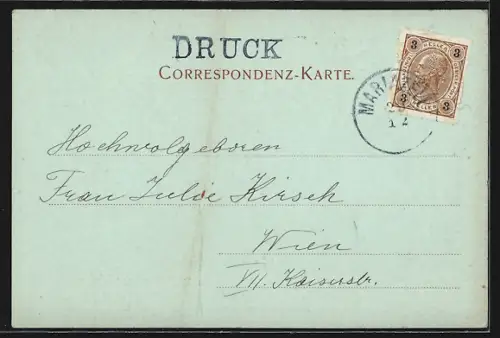 DRUCK
CORRESPONDENZ-KARTE.
3 HELLER 3
3 3
MARIA
12
Hochwolgeboren
Frau Julie Kirsch
Wien
VII. Kaiserstr.